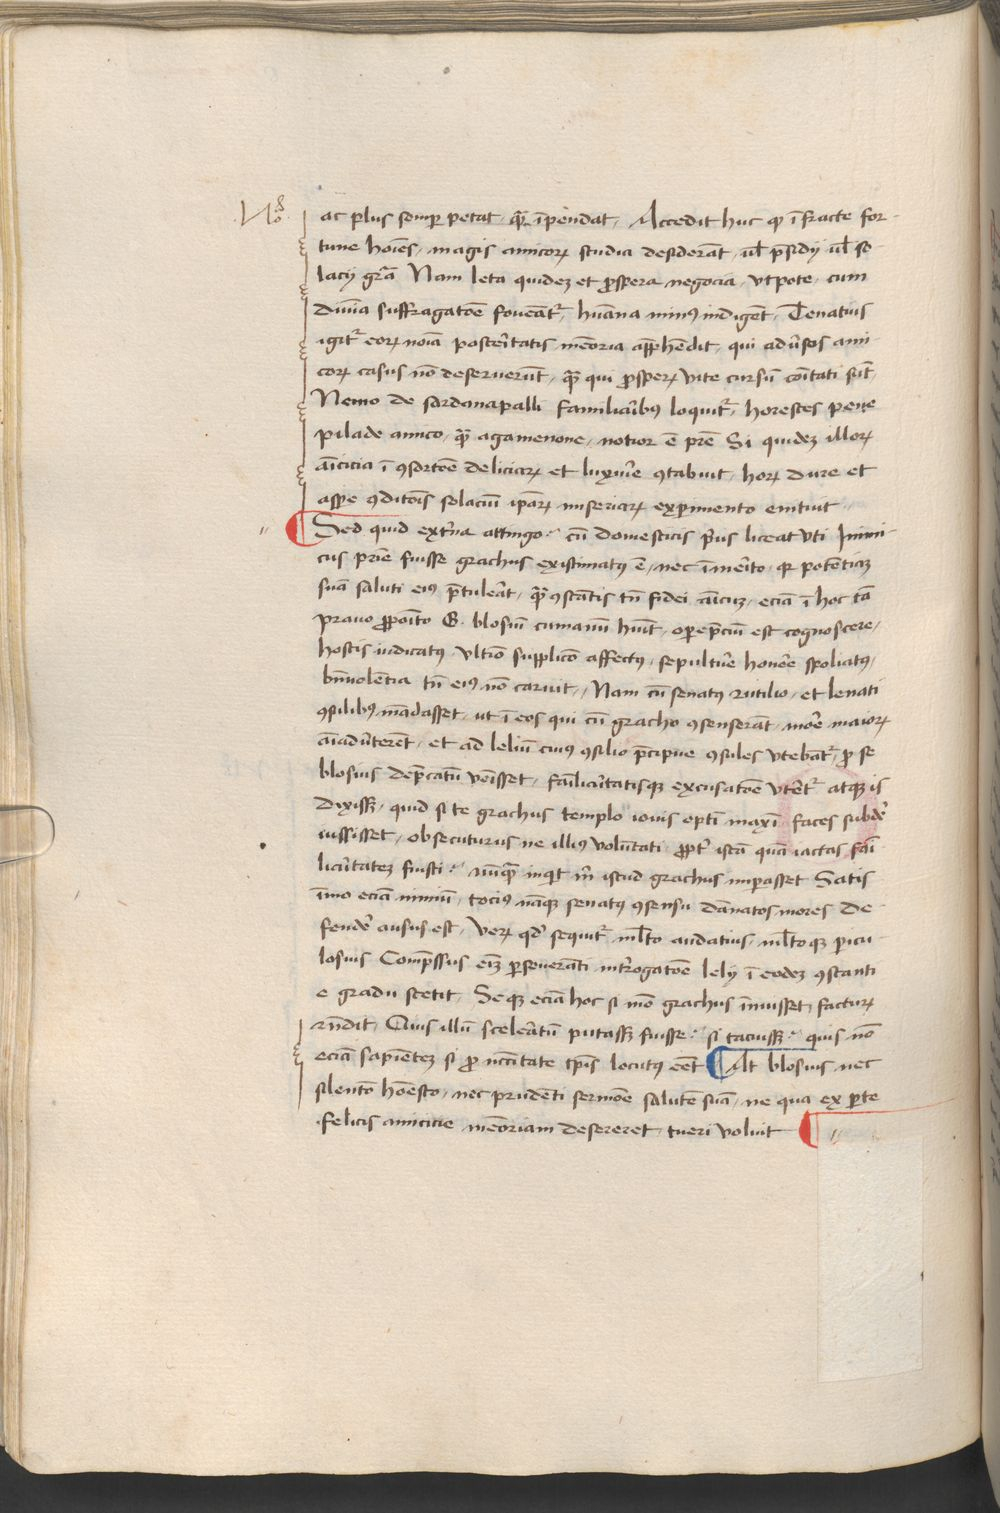 No&
ac plus semp petat, qm̄ īpendat, Accedit huc qp īfracte for-
tune hoīes, magis amicorꝝ studia desiderāt, ul p̄sidij ul so
lacij gr̄a Nam leta quideꝫ et ꝓspera negocia, vtpote, cum
diuīa suffragatōe foueāt᷑, hu̅ana min⁹ indigēt, Tenatius
igit᷑ eorꝝ noīa posterītatis mēoria app̱hēdit, qui adūsos ami
corꝝ casus nō deseruerūt, qm̄ qui ꝓsperꝝ vite cursū cōitati sūt,
Nemo de sardanapalli familiarībus loquit᷑, horestes pene
pilade amico, qm̄ agamenone, notior ē pr̄e Si quideꝫ illorꝝ
aīcicia ī ꝯsortōe deliciarꝝ et luxurīe ꝯtabuit, horꝝ dure et
aspe ꝯditōis solaciū ip̄arꝝ miseriarꝝ experimento enituit
Sed quid extīna attingo? cū domesticis p̄us liceat vti Inimi
cus pr̄ie fuisse grachus existimat⁹ ē, nec īmerīto, qr potētiaꝫ
suā saluti ei⁹ p̄tulerāt, qm̄ ꝯstātis tn̄ fidei aīcuꝫ, eciā ī hoc tā
prauo ꝓpoīto G. blosiū cumanū hūit, opep̄ciū est cognoscere,
hostis iudicat⁹, vltīo supplicō affect⁹, sepultūe honōre spoliat⁹,
bn̄uolētia tn̄ ei⁹ nō caruit, Nam cū senat⁹ rutilio, et lenati
ꝯsulib⁹ mādasset, ut ī eos qui cū gracho ꝯsenserāt, mōre maiorꝝ
aīaduīterēt, et ad leliū cui⁹ ꝯsilio p̄cipue ꝯsules vtebāt᷑, ꝓ se
blosius dep̄catū vēisset, faīliarītatisqꝫ excusatōe vterēt᷑ atqꝫ is
dixissꝫ, quid si te grachus templo iouis optī maxī faces subdē
iussisset, obsecuturus ne illi⁹ volūtati ꝓpt᷑ istā quā iactas faī
liarītateꝫ fuisti? nūqm̄ inqt᷑ m̄ istud grachus imperasset Satis
īmo eciā nimiū, toci⁹ nāqꝫ senat⁹ ꝯsensu dānatos mores de
fendē ausus est, Verꝝ qd̄ sequit᷑ ml̄to audatius, ml̄toqꝫ picu
losius Comp̄ssus eīꝫ perseuerāti intrrogatōe lelij ī eodeꝫ ꝯstanti
e gradu stetit, Se qꝫ eciā hoc si mō grachus īnuisset facturꝝ
rn̄dit, Quis illū scelerātū putassꝫ fuisse? si tacuissꝫ? quis nō
eciā sapiēteꝫ si ꝓ nccītate tp̄is locut⁹ eēt At blosius nec
silentō hōesto, nec prudēti sermōe salutē suā, ne qua ex parte
felicis amicicie mēoriam desereret, tueri voluit